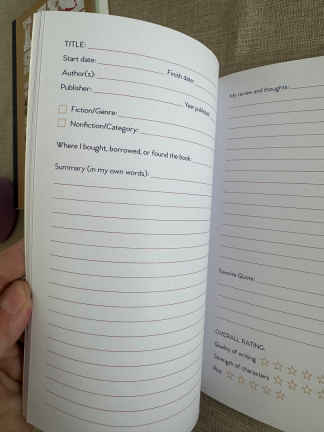 TITLE:
Start date:
Finish date:
Author(s):
Publisher:
Year published:
Fiction/Genre:
Nonfiction/Category:
Where I bought, borrowed, or found the book:
Summary (in my own words):
My review and thoughts:
Favorite Quote:
OVERALL RATING:
Quality of writing
Strength of characters
Plot